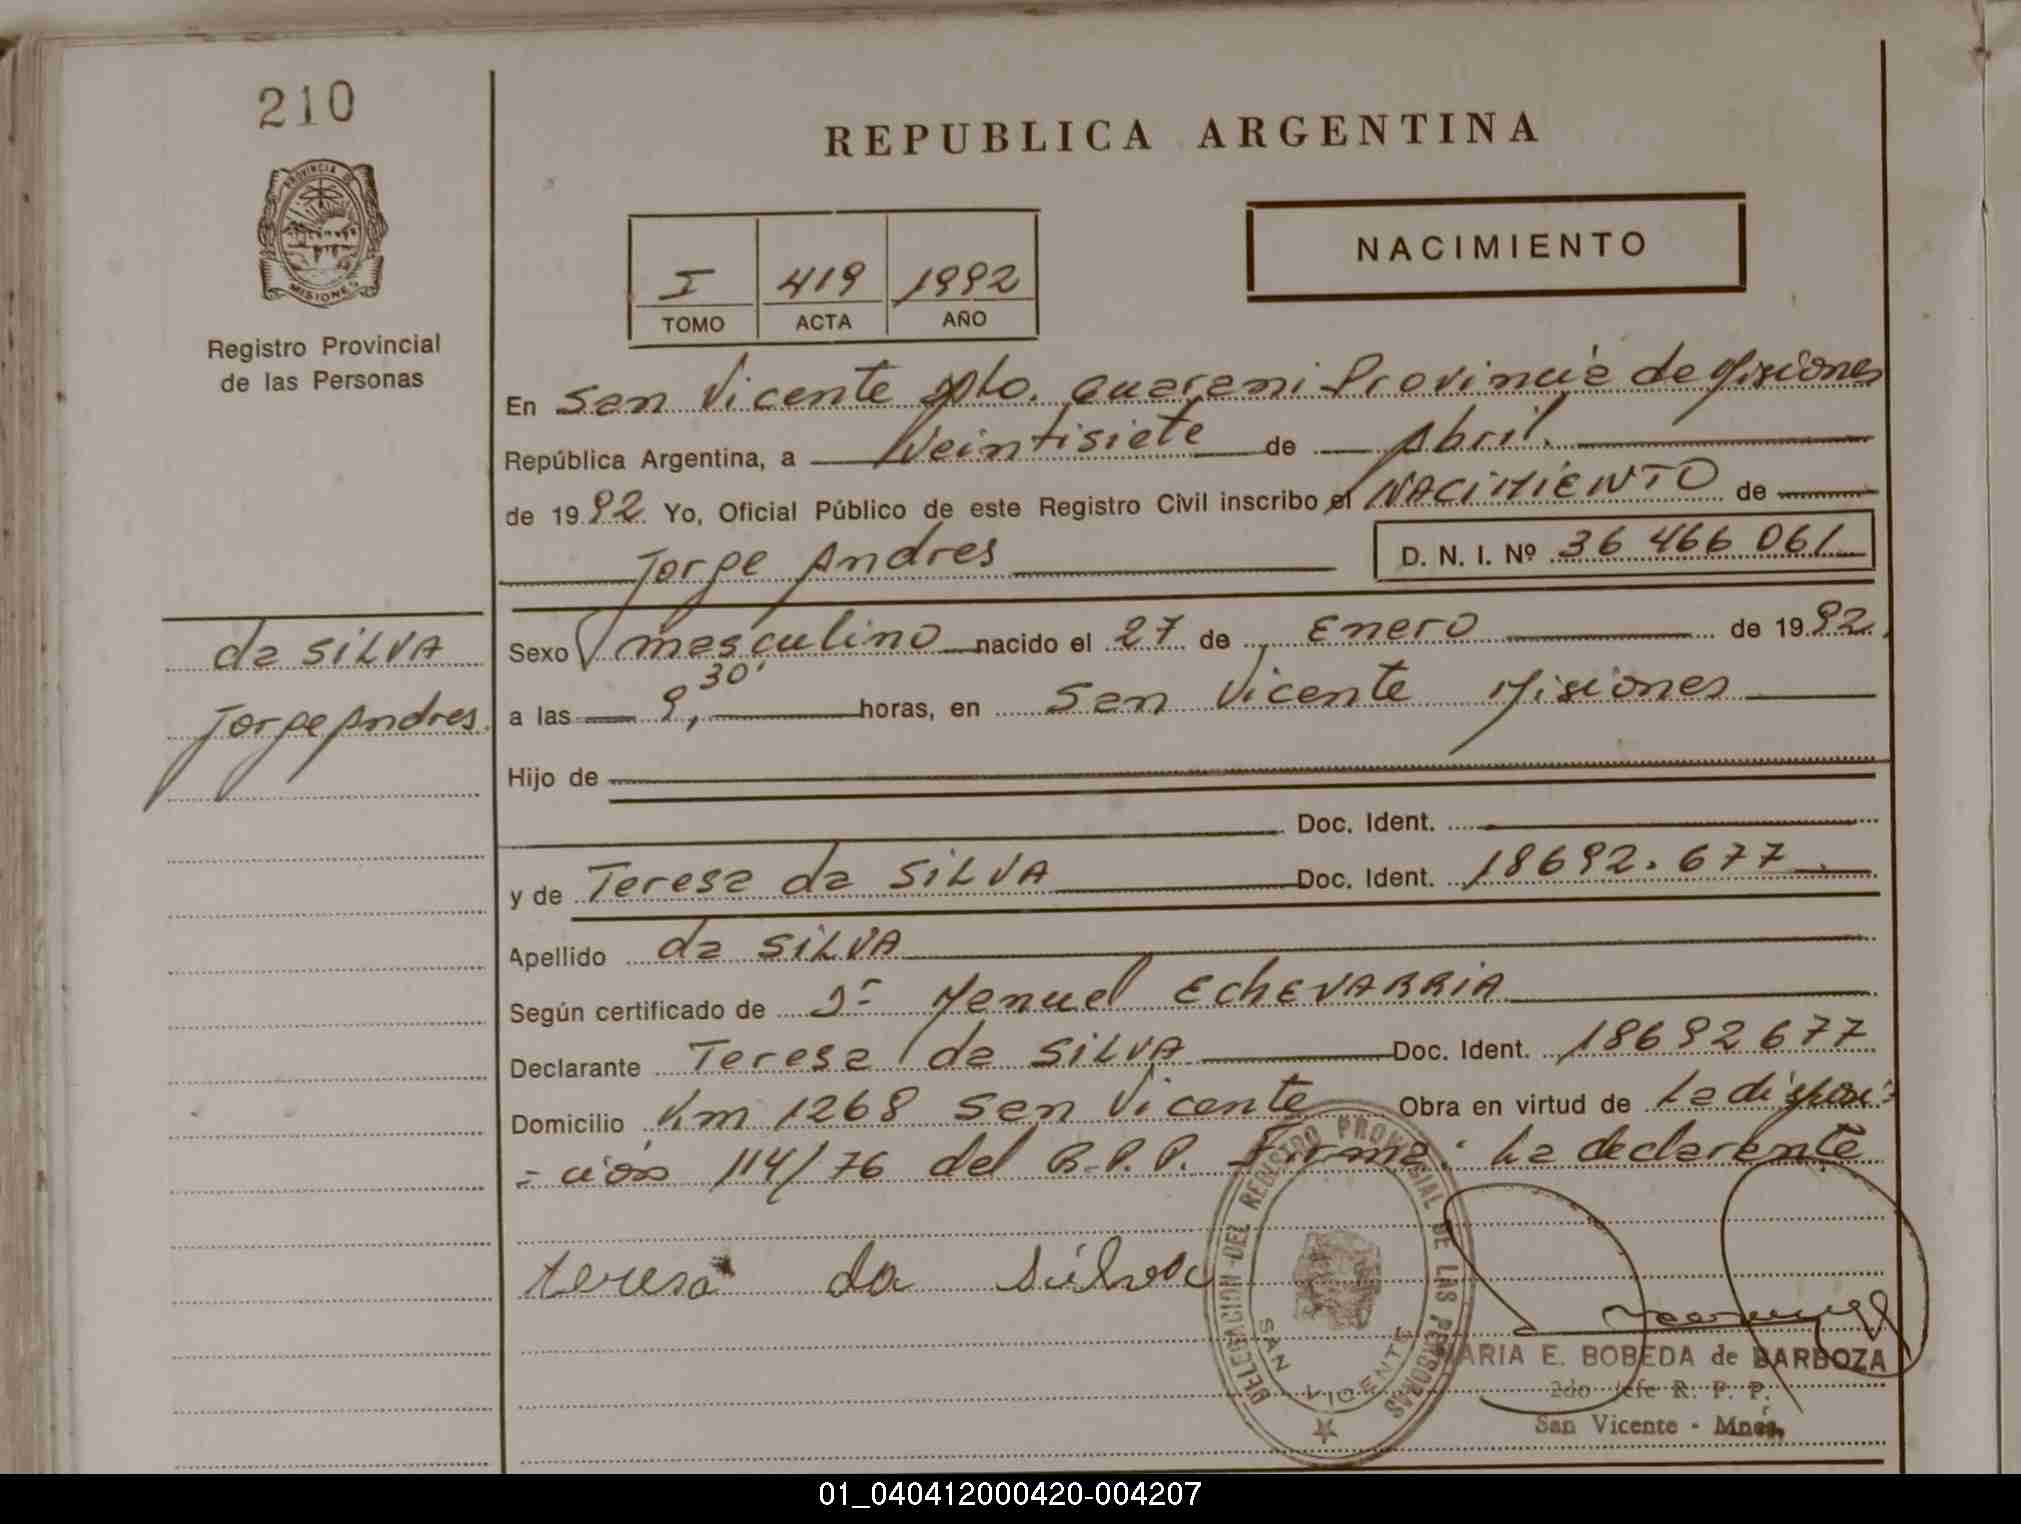 210
REPUBLICA ARGENTINA
PROVINCIA DE
MISIONES
NACIMIENTO
I 419 1992
TOMO ACTA AÑO
Registro Provincial
de las Personas
En San Vicente Dpto. Guarani Provincia de Misiones
República Argentina, a Veintisiete de Abril.
de 1992. Yo, Oficial Público de este Registro Civil inscribo el NACIMIENTO de
Jorge Andres D. N. I. Nº 36 466 061
da SILVA
Jorge Andres
Sexo masculino nacido el 27 de Enero de 1992.
a las 9,30' horas, en San Vicente Misiones
Hijo de
Doc. Ident.
y de Teresa da SILVA Doc. Ident. 18692.677
Apellido da SILVA
Según certificado de Dr Manuel EchEVARRIA
Declarante Teresa da SILVA Doc. Ident. 18692677
Domicilio Km 1268 San Vicente Obra en virtud de La disposi=
=ción 114/76 del R.P.P. Firma: La declarante
teresa da silva
DELEGACION DEL REGISTRO PROVINCIAL DE LAS PERSONAS
SAN VICENTE
MARIA E. BOBEDA de BARBOZA
2do Jefe R. P. P.
San Vicente - Mnes.
01_040412000420-004207